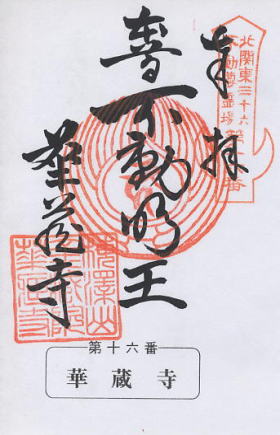 奉拝
北関東三十六
不動尊霊場
不動明王
華蔵寺
第十六番
華蔵寺